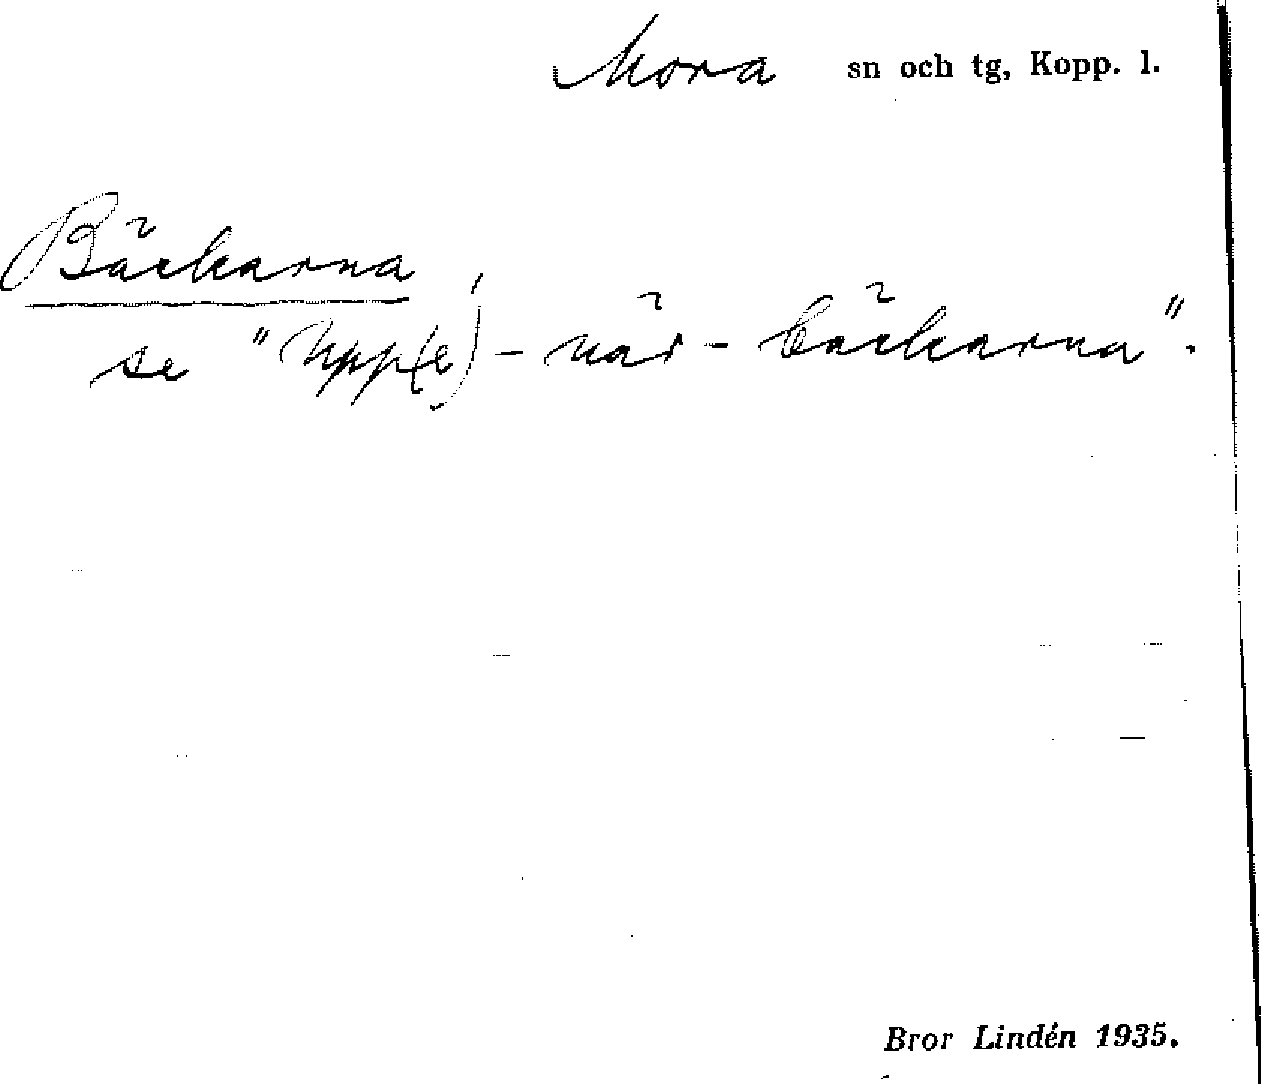 Mora sn och tg, Kopp. l.
Bäckarna
se "Upp(e)-när-bäckarna".
Bror Lindén 1935.